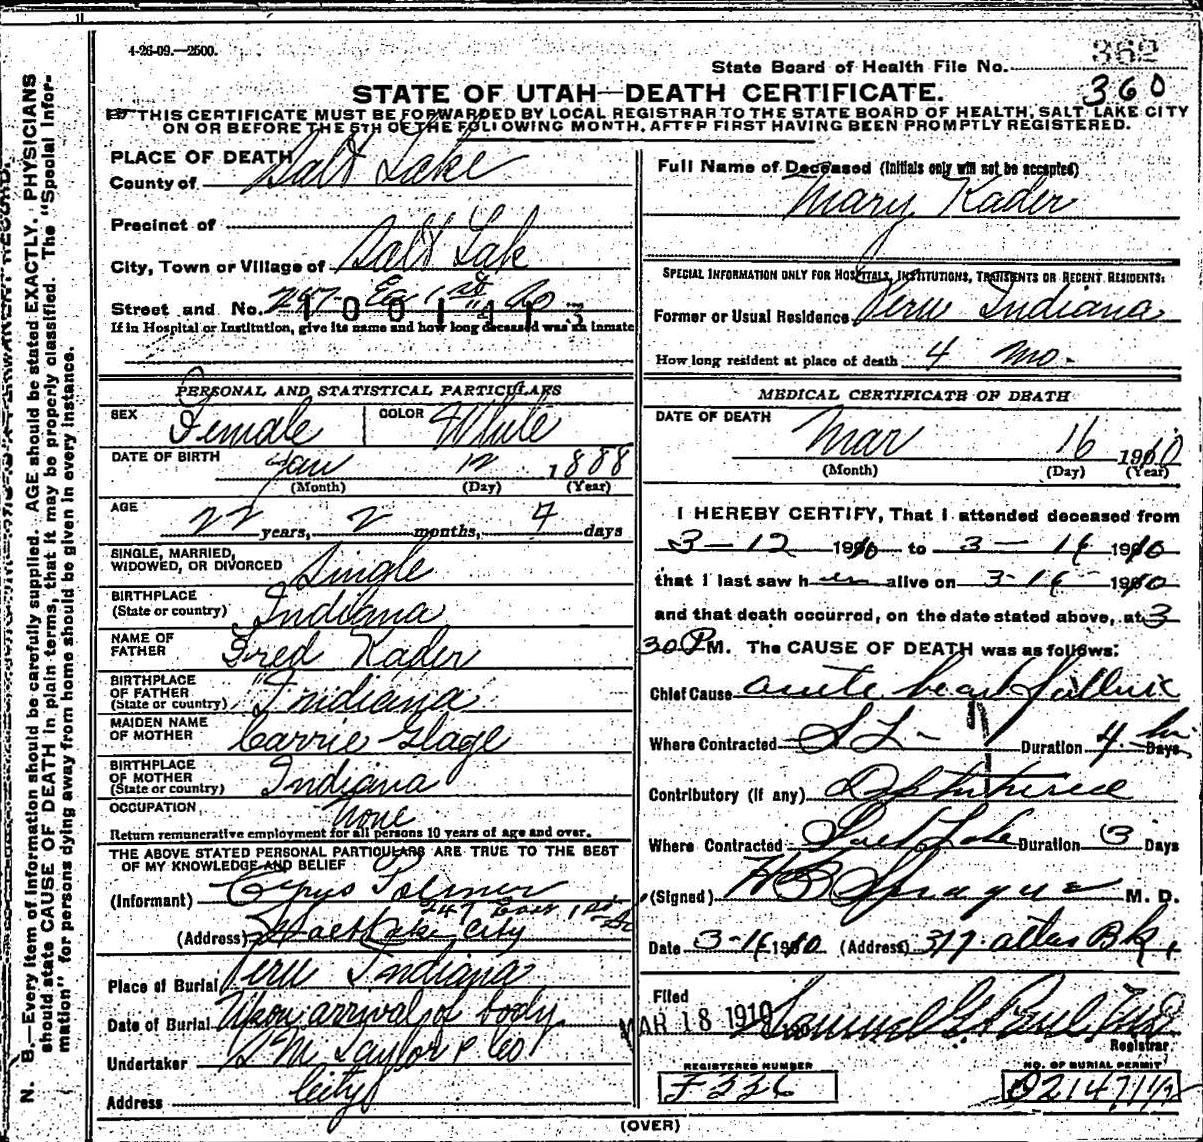 4-26-09.—2500.
362
State Board of Health File No.
360
STATE OF UTAH—DEATH CERTIFICATE.
THIS CERTIFICATE MUST BE FORWARDED BY LOCAL REGISTRAR TO THE STATE BOARD OF HEALTH, SALT LAKE CITY
ON OR BEFORE THE 5TH OF THE FOLLOWING MONTH, AFTER FIRST HAVING BEEN PROMPTLY REGISTERED.
N. B.—Every item of information should be carefully supplied. AGE should be stated EXACTLY. PHYSICIANS
should state CAUSE OF DEATH in plain terms, that it may be properly classified. The "Special Infor-
mation" for persons dying away from home should be given in every instance.
PLACE OF DEATH
County of Salt Lake
Precinct of
City, Town or Village of Salt Lake
Street and No. 247 E 1st So
1001413
If in Hospital or Institution, give its name and how long deceased was an inmate
PERSONAL AND STATISTICAL PARTICULARS
SEX Female COLOR White
DATE OF BIRTH Jan 12 1888
(Month) (Day) (Year)
AGE 22 years, 2 months, 4 days
SINGLE, MARRIED,
WIDOWED, OR DIVORCED Single
BIRTHPLACE
(State or country) Indiana
NAME OF
FATHER Fred Kader
BIRTHPLACE
OF FATHER
(State or country) Indiana
MAIDEN NAME
OF MOTHER Carrie Glage
BIRTHPLACE
OF MOTHER
(State or country) Indiana
OCCUPATION None
Return remunerative employment for all persons 10 years of age and over.
THE ABOVE STATED PERSONAL PARTICULARS ARE TRUE TO THE BEST
OF MY KNOWLEDGE AND BELIEF
(Informant) Cyrus Palmer
247 East 1st So
(Address) Salt Lake City
Place of Burial Peru Indiana
Date of Burial Upon arrival of body
Undertaker S M Taylor & Co
Address City
Full Name of Deceased (Initials only will not be accepted)
Mary Kader
SPECIAL INFORMATION ONLY FOR HOSPITALS, INSTITUTIONS, TRANSIENTS OR RECENT RESIDENTS:
Former or Usual Residence Peru Indiana
How long resident at place of death 4 mo.
MEDICAL CERTIFICATE OF DEATH
DATE OF DEATH
Mar 16 1910
(Month) (Day) (Year)
I HEREBY CERTIFY, That I attended deceased from
3-12 1910 to 3-16 1910
that I last saw her alive on 3-16 1910
and that death occurred, on the date stated above, at 3
30 P M. The CAUSE OF DEATH was as follows:
Chief Cause acute heart failure
Where Contracted S L Duration 4 hr Days
Contributory (if any)
Where Contracted Salt Lake Duration 3 Days
(Signed) H B Sprague M. D.
Date 3-16 1910 (Address) 377 atlas Bk,
Filed
MAR 18 1910 Samuel G. Paul, MD
Registrar
REGISTERED NUMBER
F 336
NO. OF BURIAL PERMIT
(OVER)